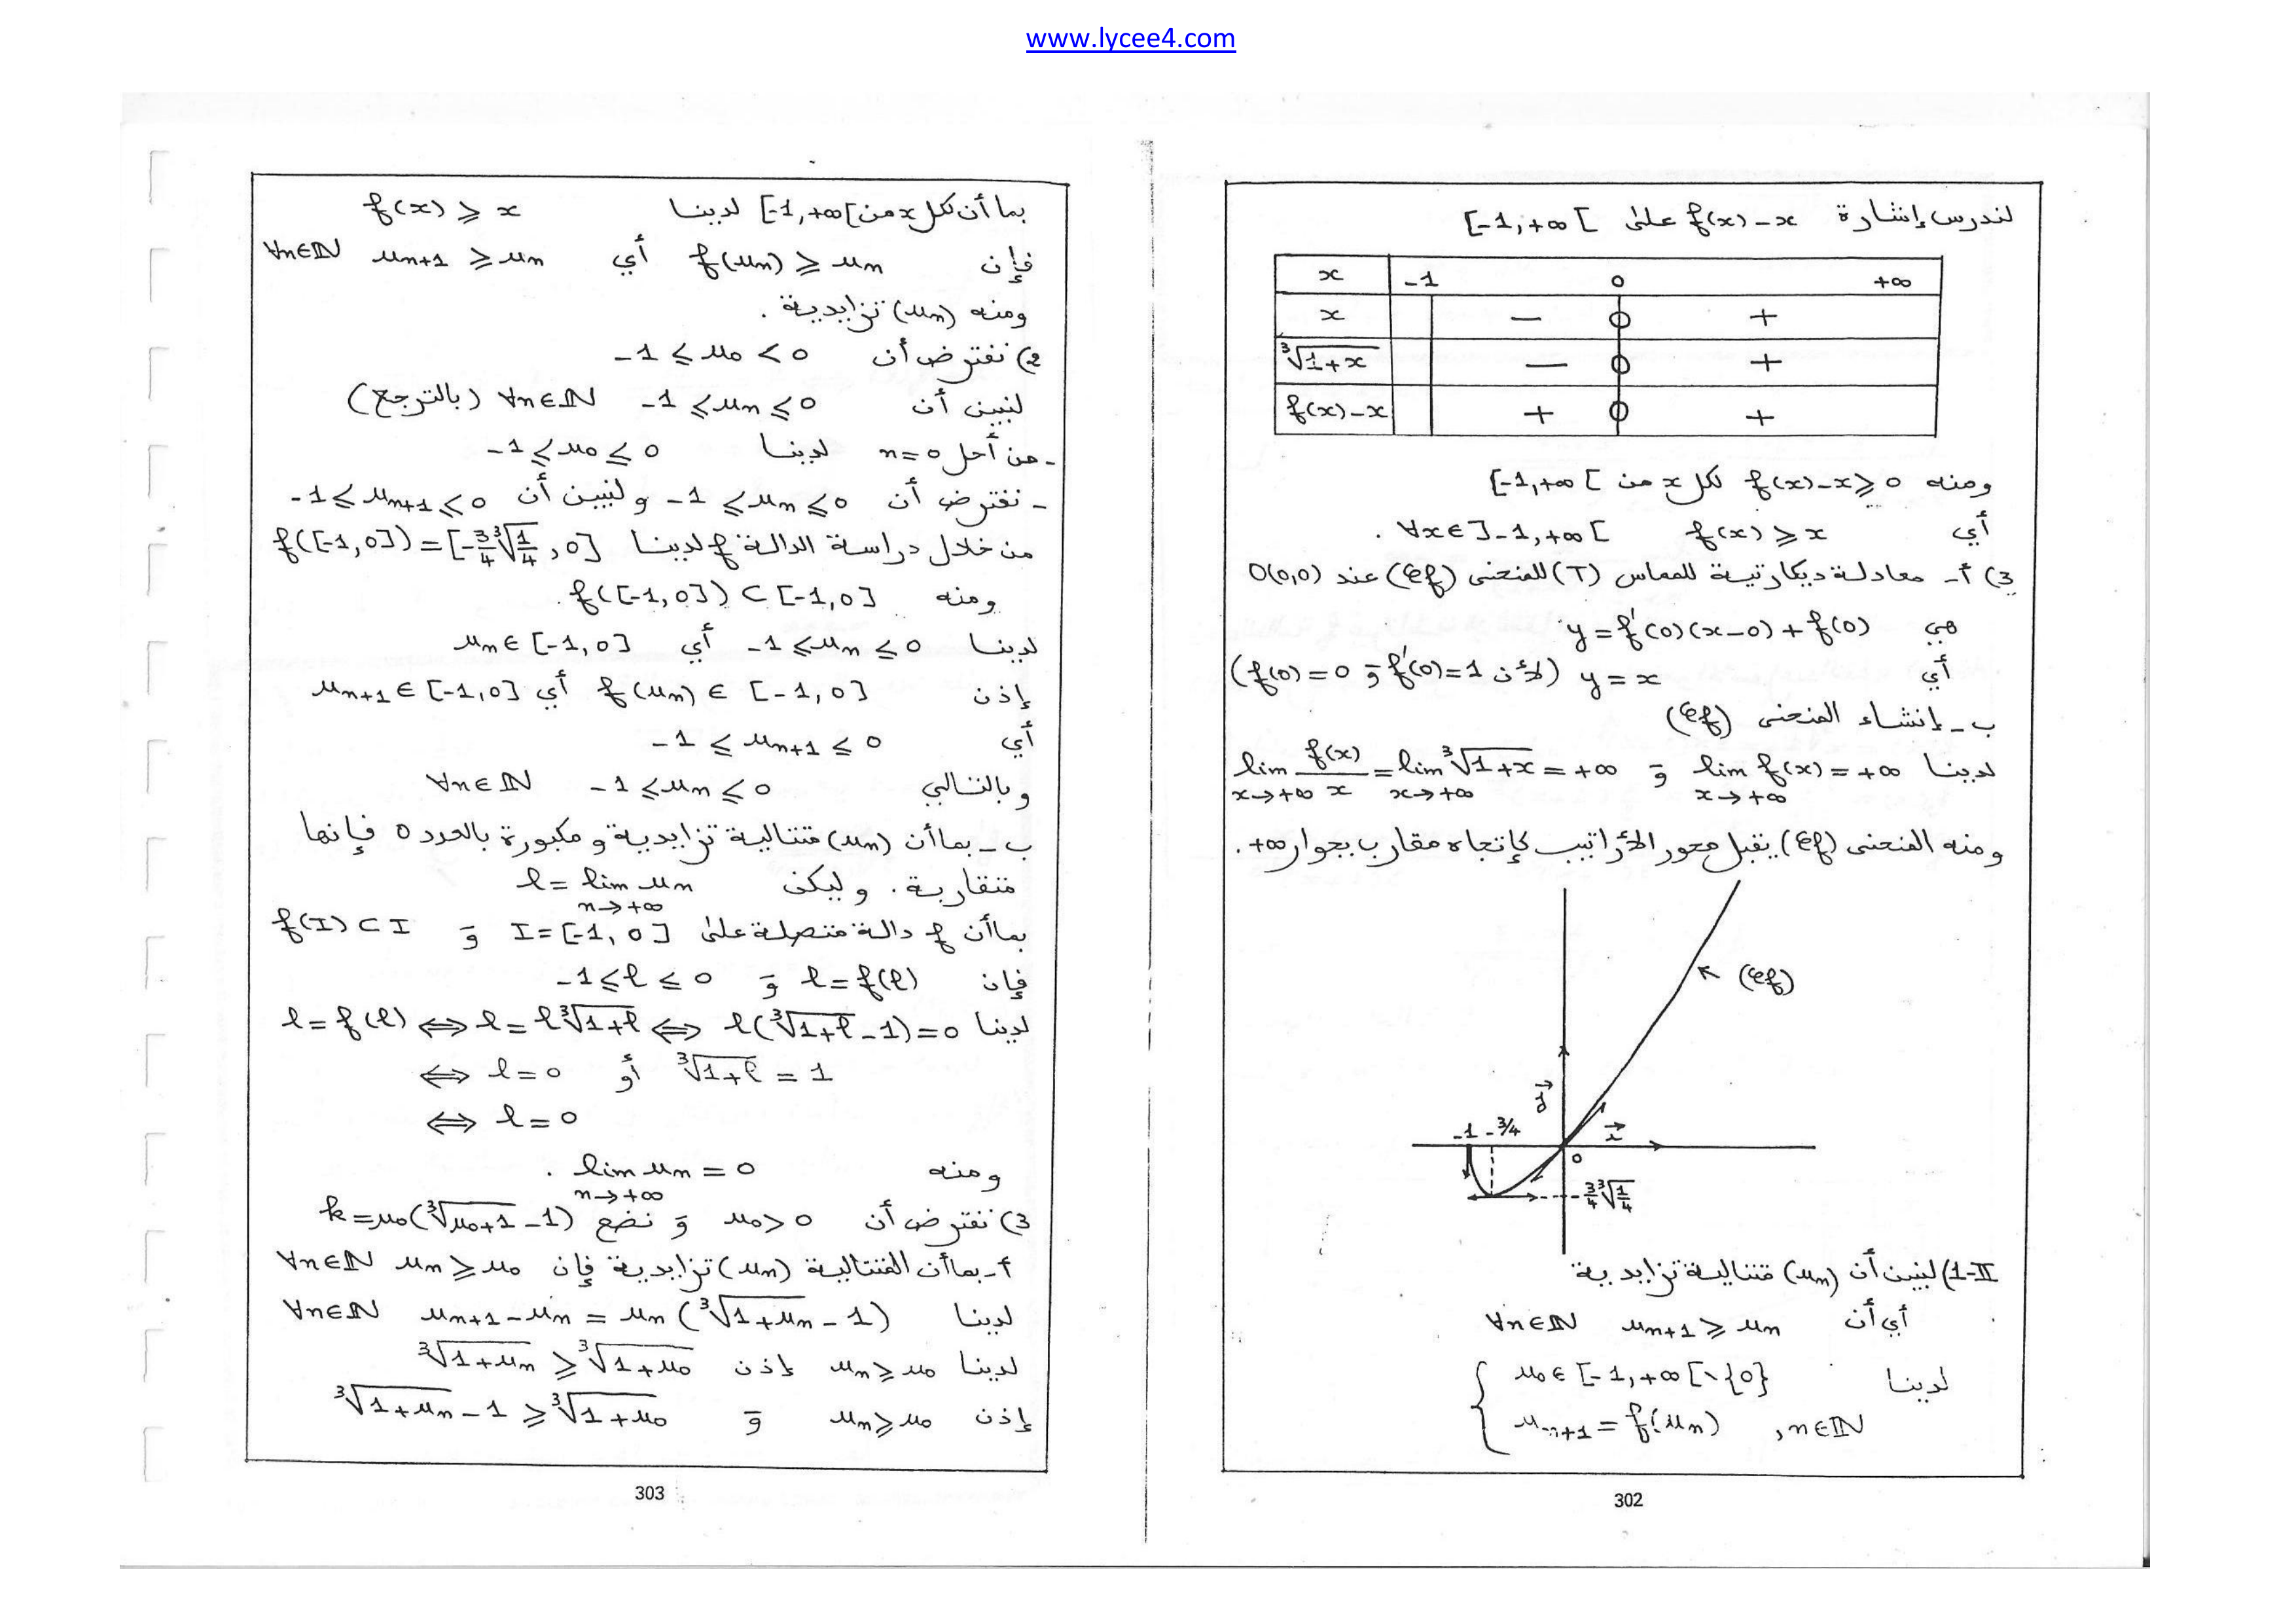 www.lycee4.com
لندرس إشارة f(x)-x على [-1,+∞[
x -1 0 +∞
x − 0 +
∛(1+x) − 0 +
f(x)-x + 0 +
ومنه f(x)-x ⩾ 0 لكل x من [-1,+∞[
أي f(x) ⩾ x ∀x∈]-1,+∞[ .
3) أ- معادلة ديكارتية للمماس (T) للمنحنى (𝒞f) عند O(0,0)
هي y = f'(0)(x-0)+f(0)
أي y = x (لأن f'(0)=1 و f(0)=0)
ب- إنشاء المنحنى (𝒞f)
لدينا lim f(x) = +∞ و lim f(x)/x = lim ∛(1+x) = +∞
x→+∞ x→+∞ x→+∞
ومنه المنحنى (𝒞f) يقبل محور الأراتيب كإتجاه مقارب بجوار +∞.
(𝒞f)
j⃗
-1 -3/4 i⃗
0
-3/4 ∛(1/4)
II-1) لنبين أن (un) متتالية تزايدية
أي أن un+1 ⩾ un ∀n∈ℕ
لدينا { u0 ∈ [-1,+∞[ \ {0}
un+1 = f(un) , n∈ℕ
302
بما أن لكل x من [-1,+∞[ لدينا f(x) ⩾ x
فإن f(un) ⩾ un أي un+1 ⩾ un ∀n∈ℕ
ومنه (un) تزايدية .
2) نفترض أن -1 ⩽ u0 < 0
لنبين أن -1 ⩽ un ⩽ 0 ∀n∈ℕ (بالترجع)
- من أجل n=0 لدينا -1 ⩽ u0 ⩽ 0
- نفترض أن -1 ⩽ un ⩽ 0 ولنبين أن -1 ⩽ un+1 ⩽ 0
من خلال دراسة الدالة f لدينا f([-1,0]) = [-3/4 ∛(1/4) , 0]
ومنه f([-1,0]) ⊂ [-1,0] .
لدينا -1 ⩽ un ⩽ 0 أي un ∈ [-1,0]
إذن f(un) ∈ [-1,0] أي un+1 ∈ [-1,0]
أي -1 ⩽ un+1 ⩽ 0
وبالتالي -1 ⩽ un ⩽ 0 ∀n∈ℕ
ب- بما أن (un) متتالية تزايدية ومكبورة بالعدد 0 فإنها
متقاربة . وليكن ℓ = lim un
n→+∞
بما أن f دالة متصلة على I = [-1,0] و f(I) ⊂ I
فإن ℓ = f(ℓ) و -1 ⩽ ℓ ⩽ 0
لدينا ℓ = f(ℓ) ⟺ ℓ = ℓ∛(1+ℓ) ⟺ ℓ(∛(1+ℓ) - 1) = 0
⟺ ℓ = 0 أو ∛(1+ℓ) = 1
⟺ ℓ = 0
ومنه lim un = 0 .
n→+∞
3) نفترض أن u0 > 0 و نضع k = u0(∛(u0+1) - 1)
أ- بما أن المتتالية (un) تزايدية فإن un ⩾ u0 ∀n∈ℕ
لدينا un+1 - un = un (∛(1+un) - 1) ∀n∈ℕ
لدينا un ⩾ u0 إذن ∛(1+un) ⩾ ∛(1+u0)
إذن un ⩾ u0 و ∛(1+un) - 1 ⩾ ∛(1+u0)
303